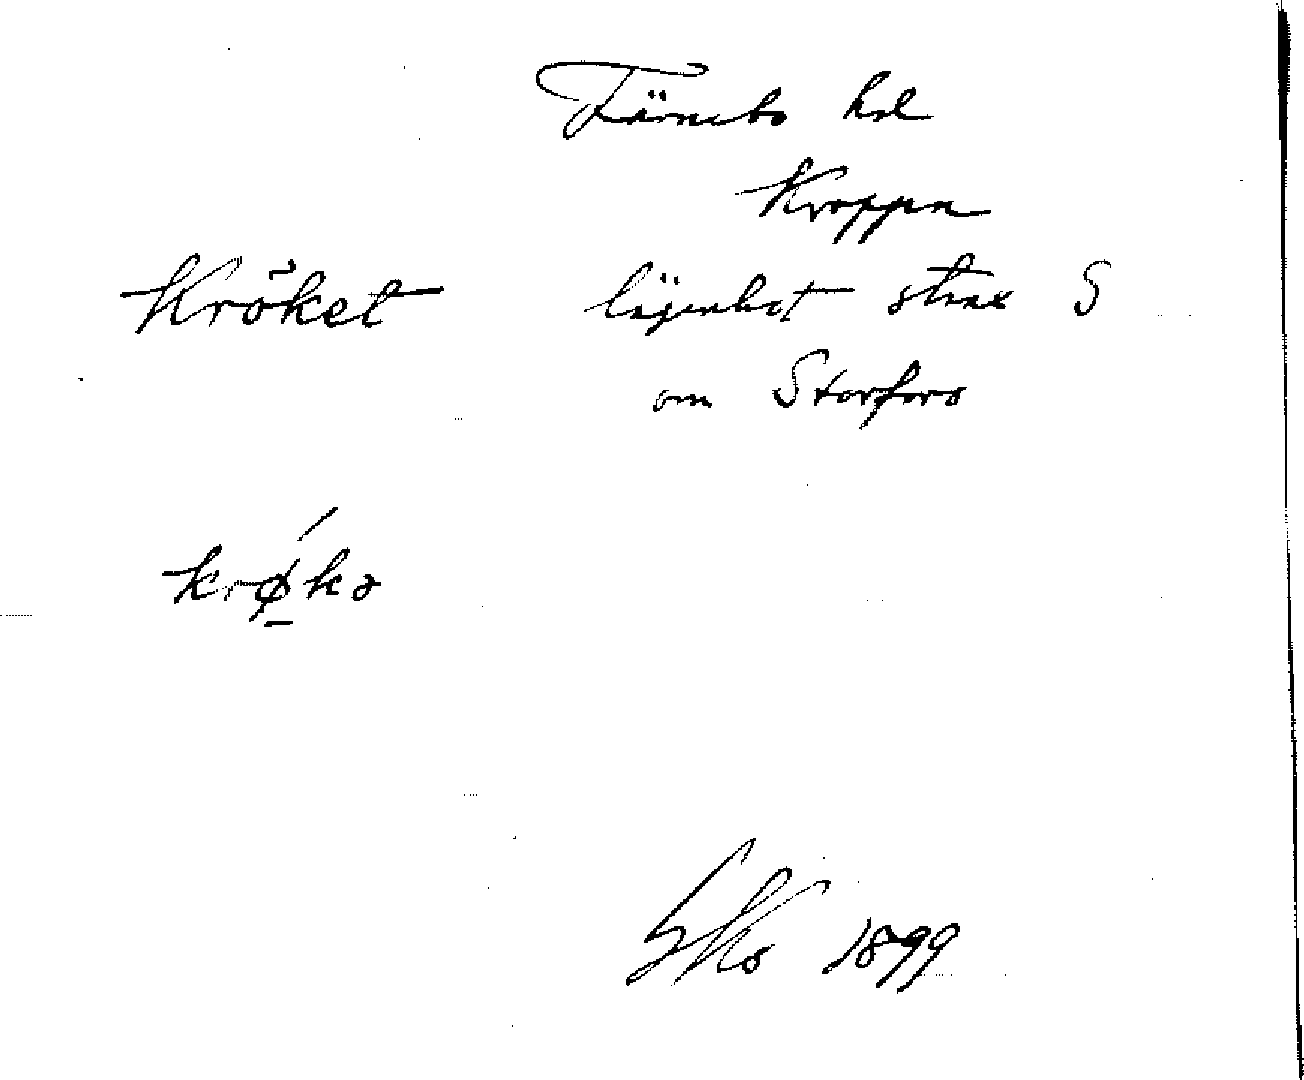 Färnebo hd
Kroppa
Kröket lägenhet strax S
om Storfors
krǿ̠kə
1899